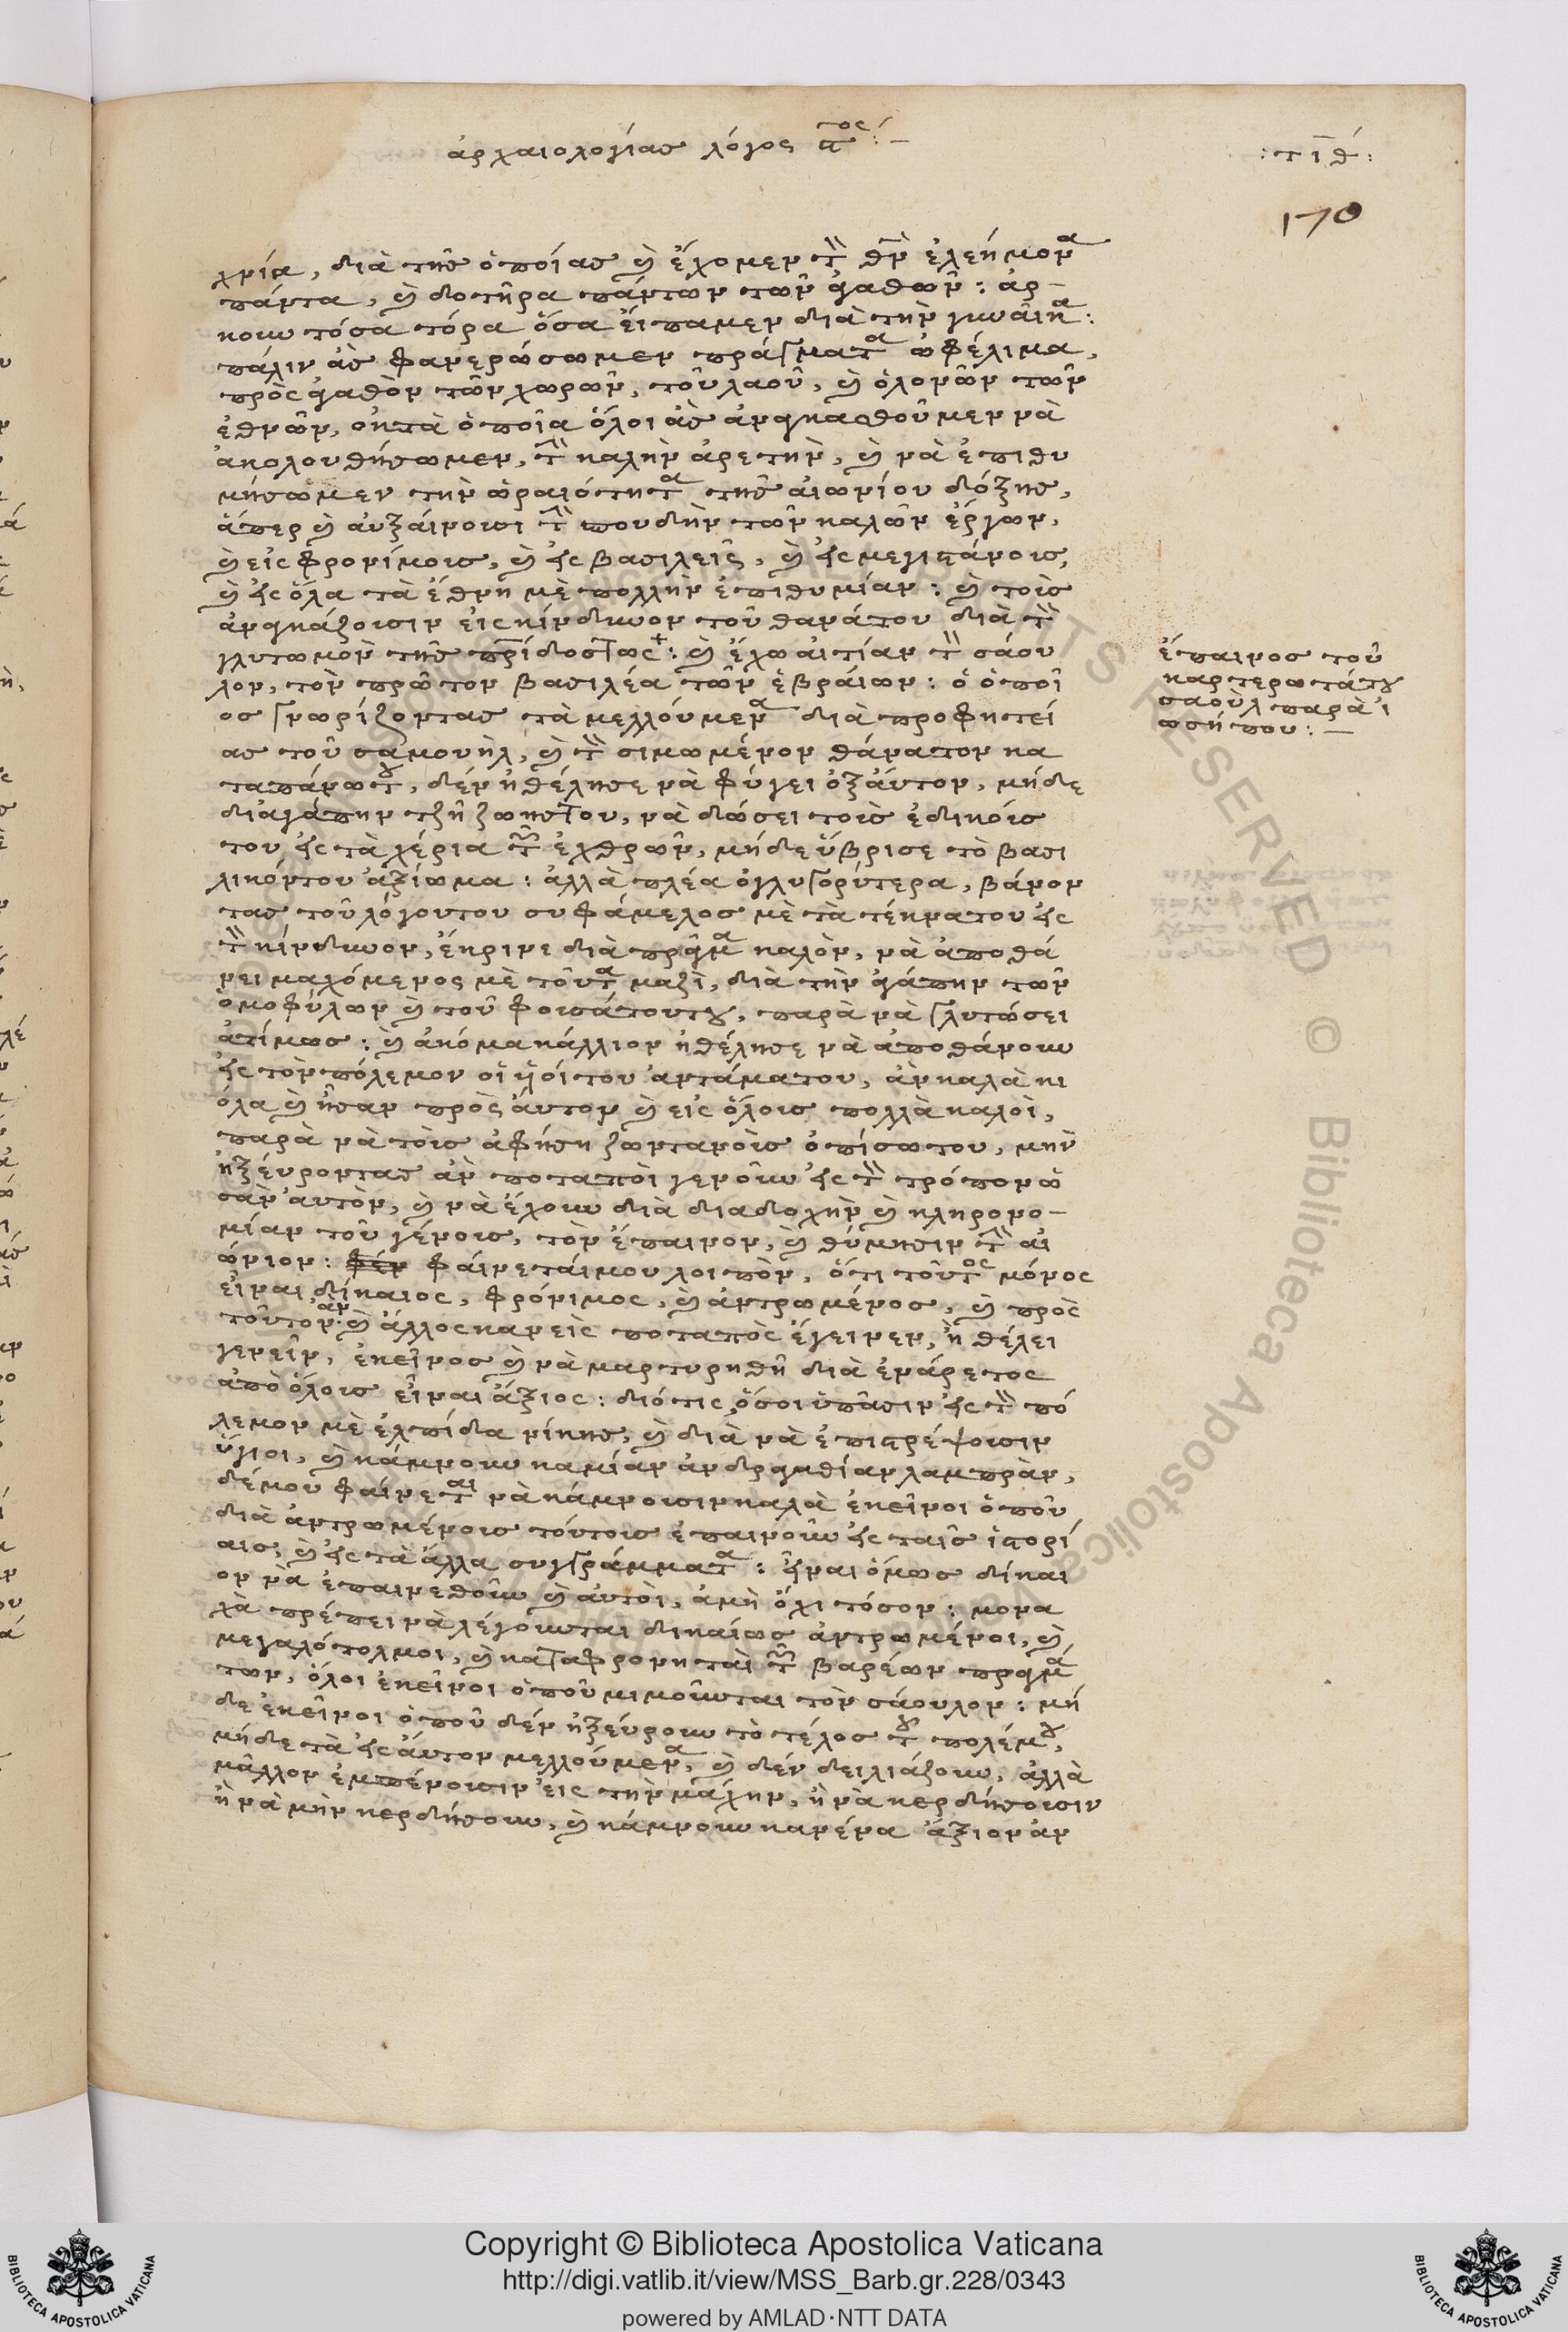 ἀρχαιολογίας λόγος ϛ^τος: –
: τιθ :
170
χνία, διὰ τῆς ὁποίας ὲ ἔχομεν τὸν θν ἐλεήμονα
πάντα, ὲ δοτῆρα πάντων τῶν ἀγαθῶν: ἀρ–
κουν τόσα τόρα ὅσα εἴπαμεν διὰ τὴν γυναῖκα:
πάλιν ἂς φανερώσωμεν πράγματα ὠφέλιμα,
πρὸς ἀγαθὸν τῶν χωρῶν, τοῦ λαοῦ, ὲ ὁλονῶν τῶν
ἐθνῶν, εἰς τὰ ὁποῖα ὅλοι ἂς ἀναγκασθοῦμεν νὰ
ἀκολουθήσωμεν, τὴν καλὴν ἀρετὴν, ὲ νὰ ἐπιθυ
μήσωμεν τὴν ὡραιότητα τῆς αἰωνίου δόξης,
ἅπερ ὲ αὐξαίνουσι τὴν σπουδὴν τῶν καλῶν ἔργων,
ὲ εἰς φρονίμους, ὲ εἰς βασιλεῖς, ὲ εἰς μεγιστάνους,
ὲ εἰς ὅλα τὰ ἔθνη μὲ πολλὴν ἐπιθυμίαν: ὲ τοὺς
ἀναγκάζουσιν εἰς κίνδυνον τοῦ θανάτου διὰ τὸν
γλυτωμὸν τῆς πρίδος τως: ὲ ἔχω αἰτίαν τὸν σάου
λον, τὸν πρῶτον βασιλέα τῶν ἑβραίων: ὁ ὁποῖ
ος γνωρίζοντας τὰ μελλούμενα διὰ προφητεί
ας τοῦ σαμουὴλ, ὲ τὸν σιμωμένον θάνατον κα
ταπάνω του, δὲν ἠθέλησε νὰ φύγει ὀξαύτον, μήδε
διἀγάπην τῆς ζωῆς του, νὰ δώσει τοὺς ἐδικούς
του εἰς τὰ χέρια τῶν ἐχθρῶν, μήδε ὕβρισε τὸ βασι
λικόντου ἀξίωμα: ἀλλὰ πλέα ὀγλυγορύτερα, βάνον
τας τοῦ λόγουτου συφάμελος μὲ τὰ τέκνατου εἰς
τὸν κίνδυνον, ἔκρινε διὰ πρᾶγμα καλὸν, νὰ ἀποθά
νει μαχόμενος μὲ τοῦτα μαζὶ, διὰ τὴν ἀγάπην τῶν
ὁμοφύλων ὲ τοῦ φουσάτουτου, παρὰ νὰ γλυτώσει
ἀτίμως: ὲ ἀκόμα κάλλιον ἠθέλησε νὰ ἀποθάνουν
εἰς τὸν πόλεμον οἱ ὑοί του ἀντάματου, ἂν καλὰ κι
ὅλα ὲ ἦσαν πρὸς αὐτὸν ὲ εἰς ὅλους πολλὰ καλοὶ,
παρὰ νὰ τοὺς ἀφήσῃ ζωντανοὺς ὀπίσωτου, μὴν
ἠξέυροντας ἂν ποταποὶ γενοῦν εἰς τὸν τρόπον ὡ
σὰν αὐτὸν, ὲ νὰ ἔχουν διὰ διαδοχὴν ὲ κληρονο–
μίαν τοῦ γένους, τὸν ἔπαινον, ὲ θύμησιν τὴν αἰ
ώνιον: φαίνεταίμου λοιπὸν, ὅτι τοῦτος μόνος
εἶναι δίκαιος, φρόνιμος, ὲ ἀντρωμένος, ὲ πρὸς
τοῦτον· ἂν ὲ ἄλλος κανεὶς ποταπὸς ἔγεινεν, ἢ θέλει
γενεῖν, ἐκεῖνος ὲ νὰ μαρτυρηθῇ διὰ ἐνάρετος
ἀπὸ ὅλους εἶναι ἄξιος: διότις, ὅσοι ὑπᾶσιν εἰς τὸν πό
λεμον μὲ ἐλπίδα νίκης, ὲ διὰ νὰ ἐπιστρέψουσιν
ὕγιοι, ὲ κάμνουν καμίαν ἀνδραγαθίαν λαμπρὰν,
δέμου φαίνεται νὰ κάμνουσιν καλὰ ἐκεῖνοι ὁποῦ
διὰ ἀντρωμένους τούτους ἐπαινοῦν εἰς ταῖς ἱστορί
αις, ὲ εἰς τὰ ἄλλα συγγράμματα: εἶναι ὅμως δίκαι
ον νὰ ἐπαινεθοῦν ὲ αὐτοὶ, ἀμὴ ὄχι τόσον: μονα
χὰ πρέπει νὰ λέγουνται δικαίως ἀντρωμένοι, ὲ
μεγαλότολμοι, ὲ καταφρονηταὶ τῶν βαρέων πραγμά
των, ὅλοι ἐκεῖνοι ὁποῦ μιμοῦνται τὸν σάουλον: μή
δε ἐκεῖνοι ὁποῦ δὲν ἠξέυρουν τὸ τέλος τοῦ πολέμου,
μήδε τὰ εἰς αὐτὸν μελλούμενα, ὲ δὲν δειλιάζουν, ἀλλὰ
μᾶλλον ἐμπένουσιν εἰς τὴν μάχην, ἢ νὰ κερδήσουσιν
ἢ νὰ μὴν κερδήσουν, ὲ κάμνουν κανένα ἄξιον ἀν
ἔπαινος τοῦ
καρτερωτάτου
σαοὺλ παρὰ ἰ
ωσήπου: –
Copyright © Biblioteca Apostolica Vaticana
http://digi.vatlib.it/view/MSS_Barb.gr.228/0343
powered by AMLAD·NTT DATA
BIBLIOTECA APOSTOLICA VATICANA
BIBLIOTECA APOSTOLICA VATICANA